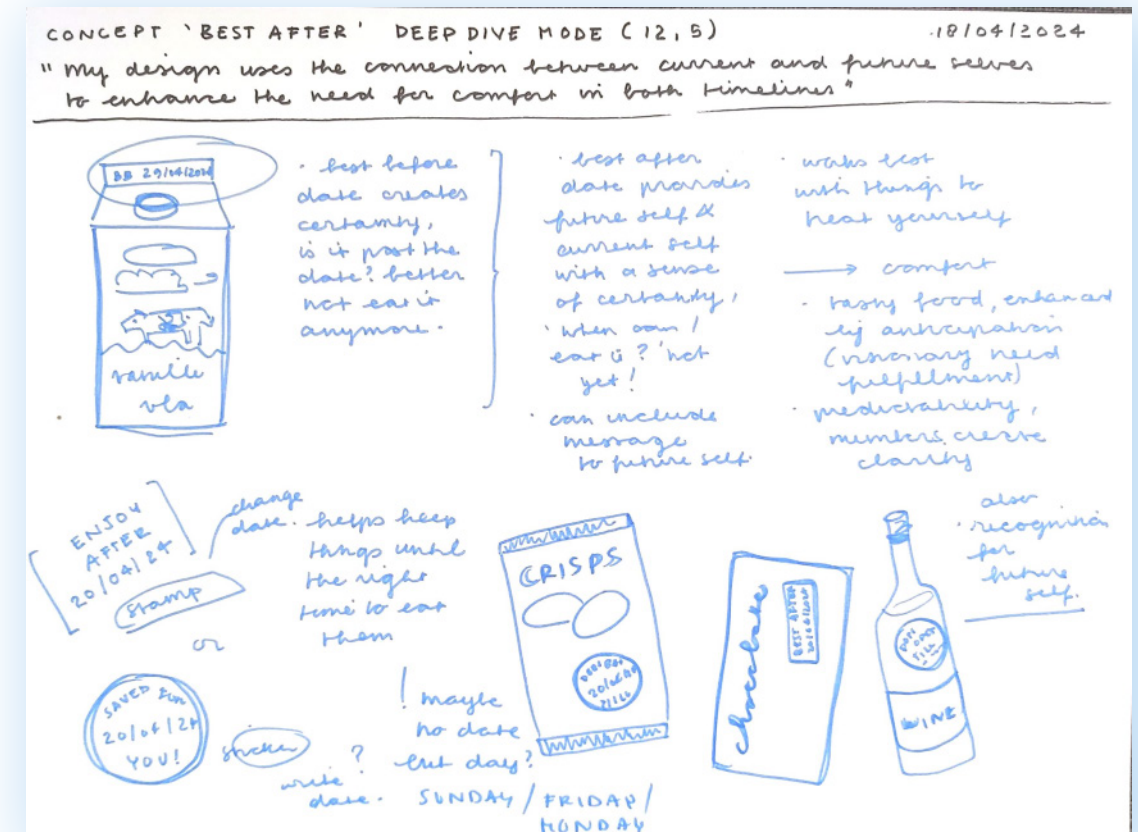 CONCEPT 'BEST AFTER' DEEP DIVE MODE (12,5)
18/04/2024
"My design uses the connection between current and future selves
to enhance the need for comfort in both timelines"
BB 29/04/2024
vanille
vla
· best before
date creates
certainty,
is it past the
date? better
not eat it
anymore.
· best after
date provides
future self &
current self
with a sense
of certainty,
· when can I
eat it? 'not
yet!
· can include
message
to future self.
· works best
with things to
treat yourself
→ comfort
· tasty food, enhanced
by anticipation
(visionary need
fulfillment)
· predictability,
numbers create
clarity
ENJOY
AFTER
20/04/24
change
date.
stamp
or
· helps keep
things until
the right
time to eat
them
SAVED FOR
20/04/24
YOU!
sticker
write?
date.
! maybe
no date
but day?
SUNDAY / FRIDAY /
MONDAY
CRISPS
20/04/24
chocolate
BEST AFTER
20/04/2024
WINE
also
· recognition
for
future
self.